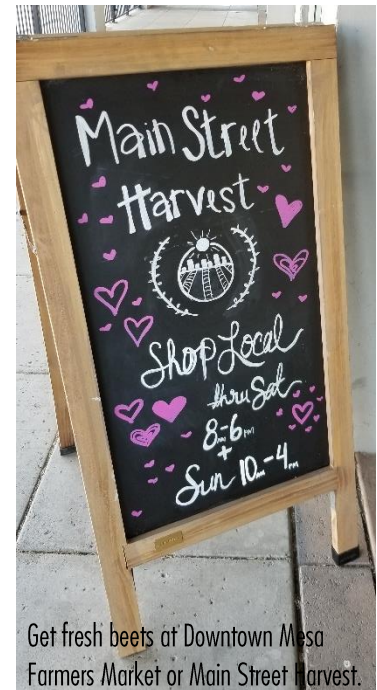 Main Street
Harvest
Shop Local
thru Sat
8am-6pm
+
Sun 10am-4pm
Get fresh beets at Downtown Mesa
Farmers Market or Main Street Harvest.